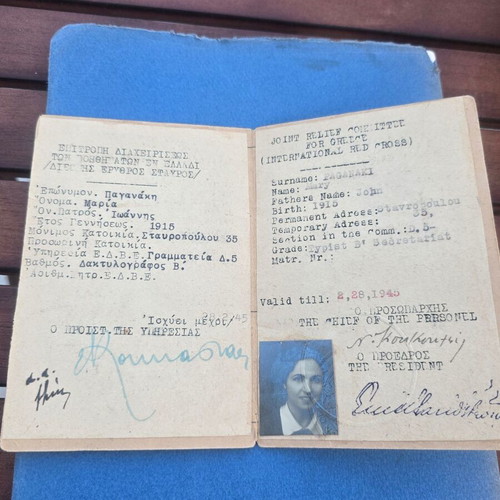 ΕΠΙΤΡΟΠΗ ΔΙΑΧΕΙΡΙΣΕΩΣ
ΤΩΝ ΒΟΗΘΗΜΑΤΩΝ ΕΝ ΕΛΛΑΔΙ
/ΔΙΕΘΝΗΣ ΕΡΥΘΡΟΣ ΣΤΑΥΡΟΣ/
Ἐπώνυμον. Παγανάκη
Ὄνομα. Μαρία
Ὄν.Πατρός. Ἰωάννης
Ἔτος Γεννήσεως. 1915
Μόνιμος Κατοικία.Σταυροπούλου 35
Προσωρινή Κατοικία.
Ὑπηρεσία Ε.Δ.Β.Ε.Γραμματεία Δ.5
Βαθμός. Δακτυλογράφος Β.
Ἀριθμ.Μητρ.Ε.Δ.Β.Ε.
Ἰσχύει μέχρι/ 28.2/45
Ο ΠΡΟΙΣΤ.ΤΗΣ ΥΠΗΡΕΣΙΑΣ
JOINT RELIEF COMMITTEE
FOR GREECE
(INTERNATIONAL RED CROSS)
Surname: PAGANAKI
Name: Mary
Fathers Name: John
Birth: 1915
Permanent Adress: Stavropoulou
35,
Temporary Adress:
Section in the Comm.: D.5-
Grade: Typist B' Secretariat
Matr. Nr.:
Valid till: 2,28,1945
Ο ΠΡΟΣΩΠΑΡΧΗΣ
THE CHIEF OF THE PERSONEL
Ο ΠΡΟΕΔΡΟΣ
THE PRESIDENT